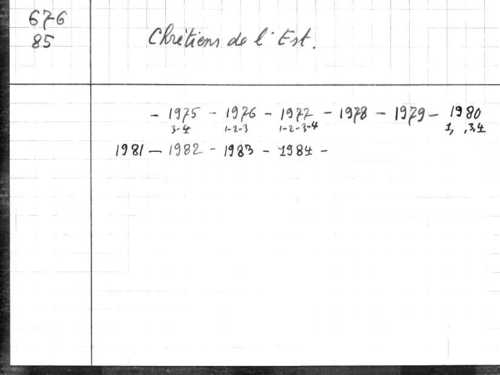 676
85
Chrétiens de l'Est.
- 1975 - 1976 - 1977 - 1978 - 1979 - 1980
3-4 1-2-3 1-2-3-4 1, ,3,4
1981 - 1982 - 1983 - 1984 -